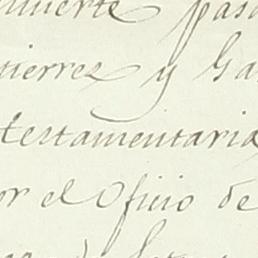 muerte pasa
tierrez y Ga
testamentaria
or el Oficio de